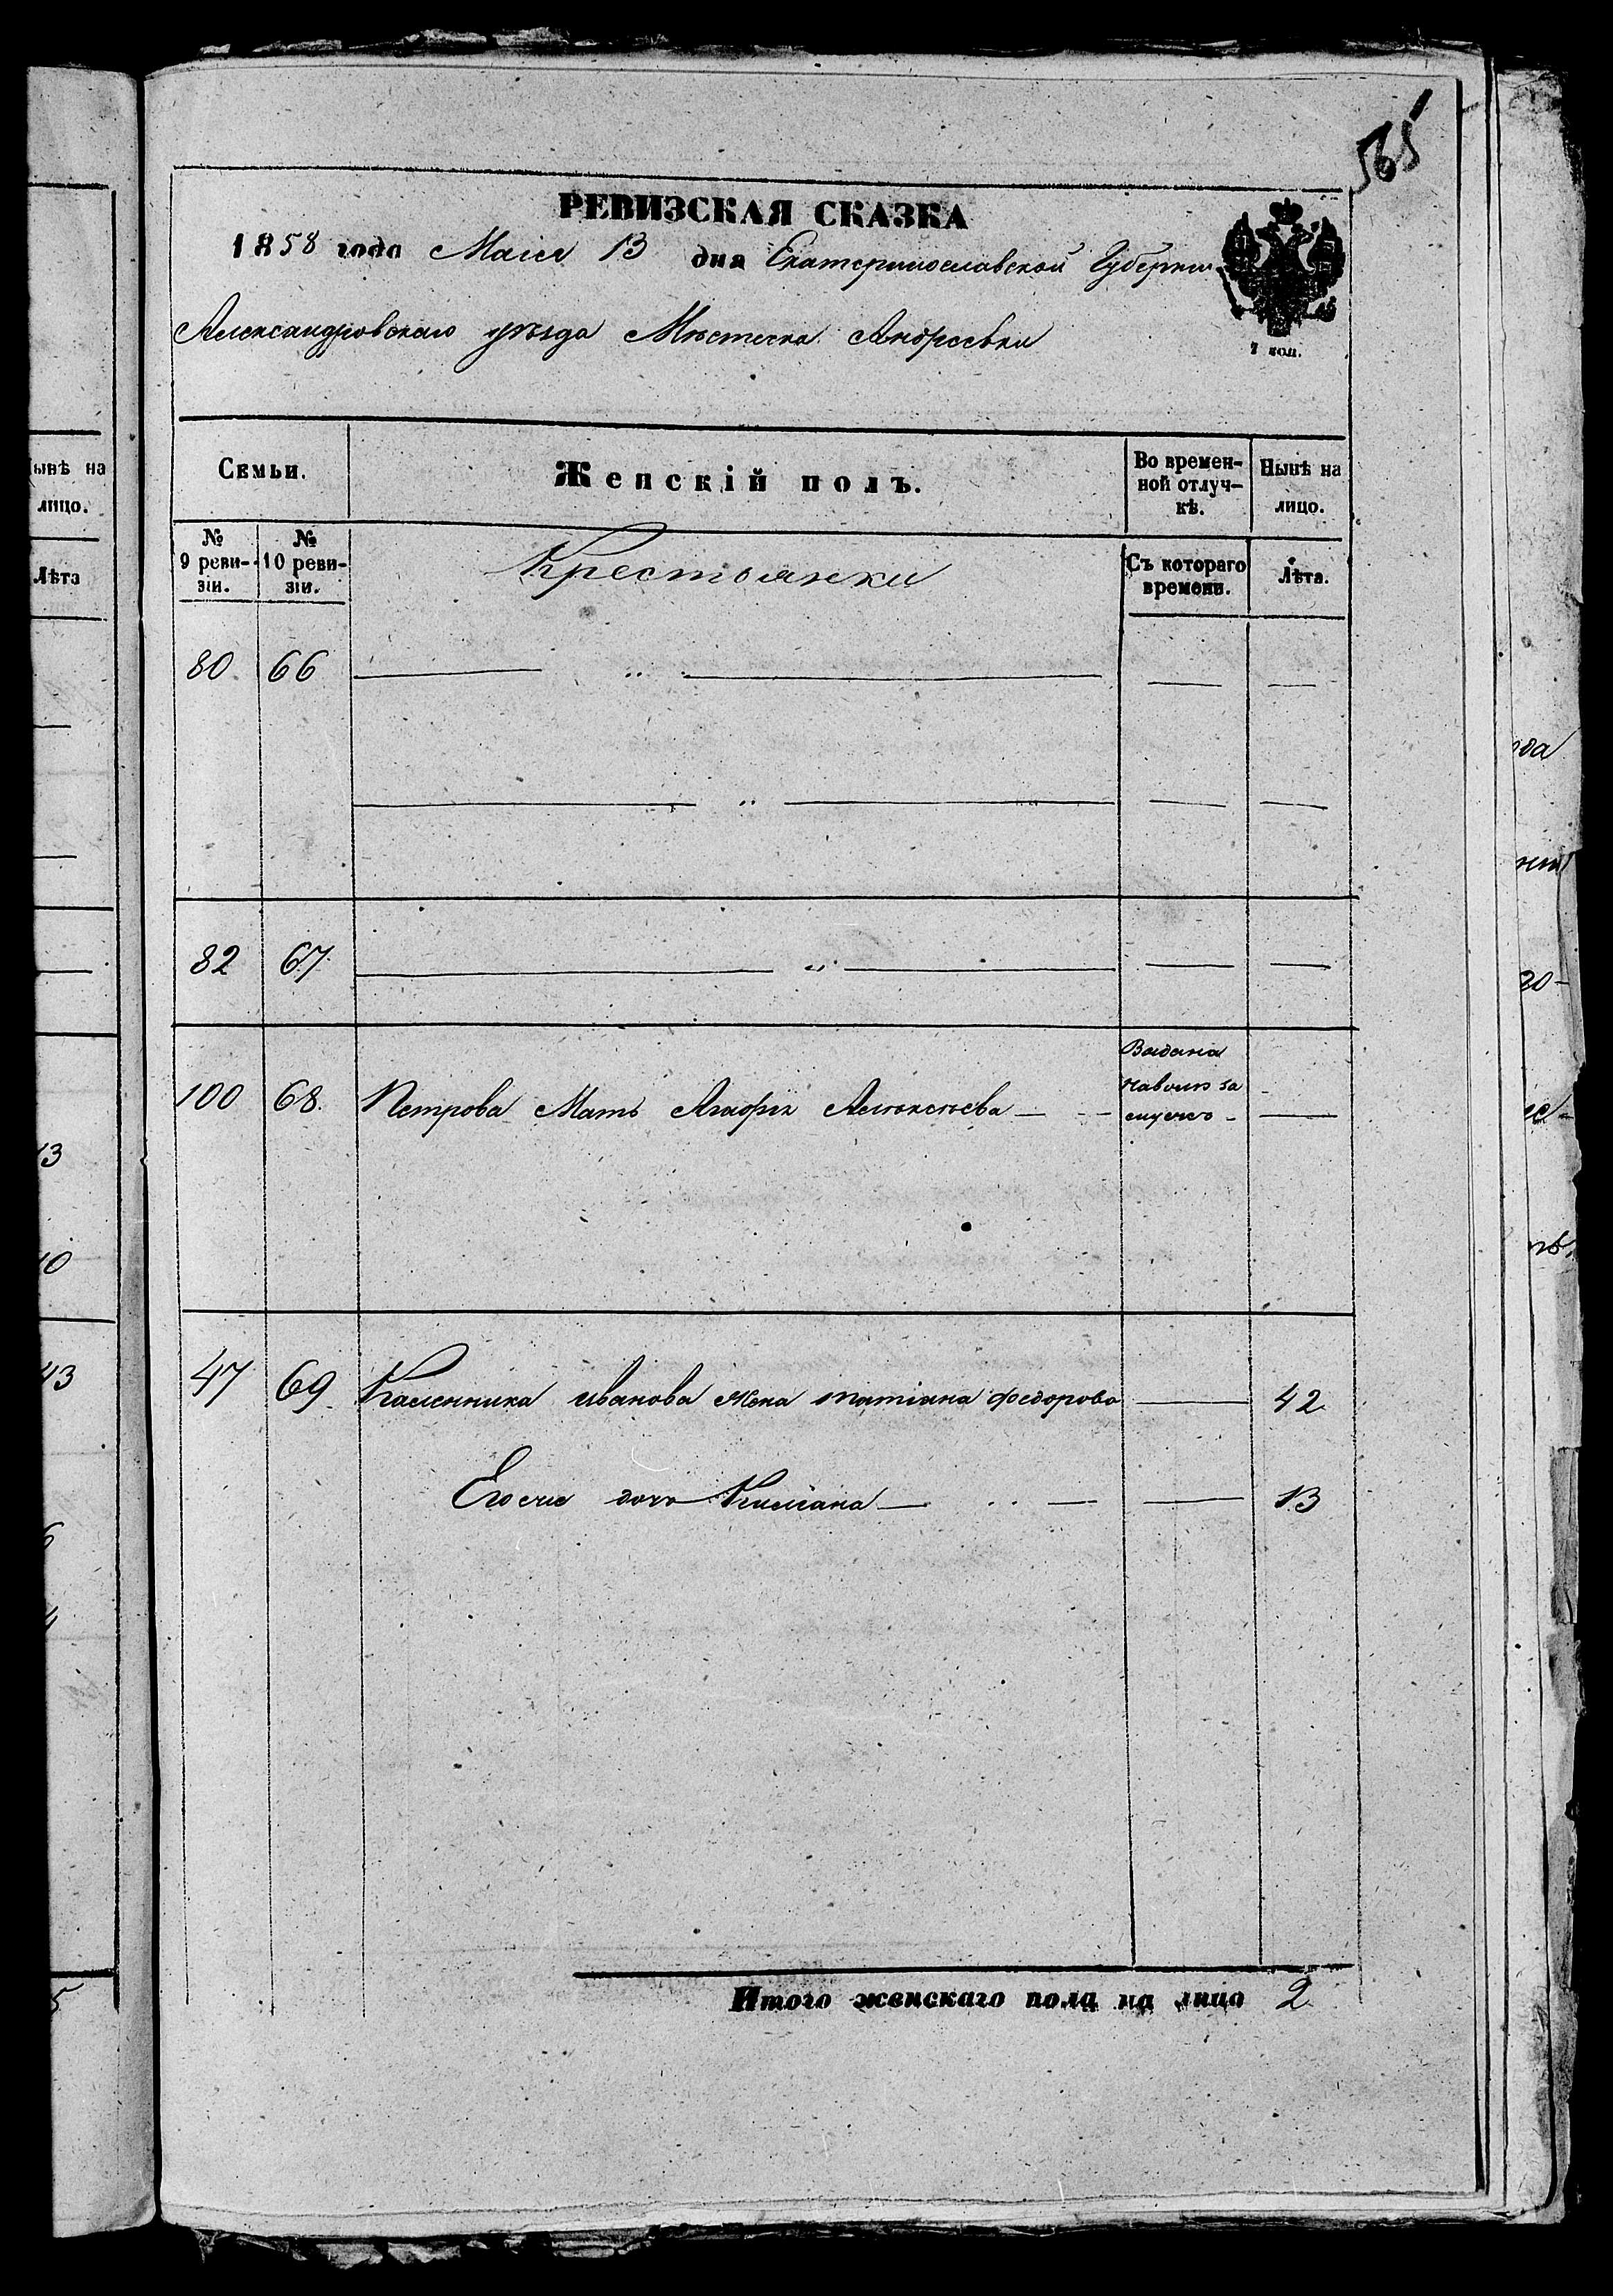 565
РЕВИЗСКАЯ СКАЗКА
1858 года Маія 13 дня Екатеринославской Губерніи
Александровскаго уѣзда Мѣстечка Андреевки
1 коп.
Семьи.
Женскій полъ.
Во времен-
ной отлуч-
кѣ.
Нынѣ на
лицо.
№
9 реви-
зіи.
№
10 реви-
зіи.
Крестьянки
Съ котораго
времени.
Лѣта.
80 66 — " — — —
— " — — —
82 67 — " — — —
Выдана
100 68. Петрова Мать Агафія Алексѣева — за —
47 69 Каленника иванова жена татіана федорова — 42
Егоже дочь — — 13
Итого женскаго пола на лицо 2
ынѣ на
лицо.
Лѣта
13
10
43
6
4
5
ода
20-